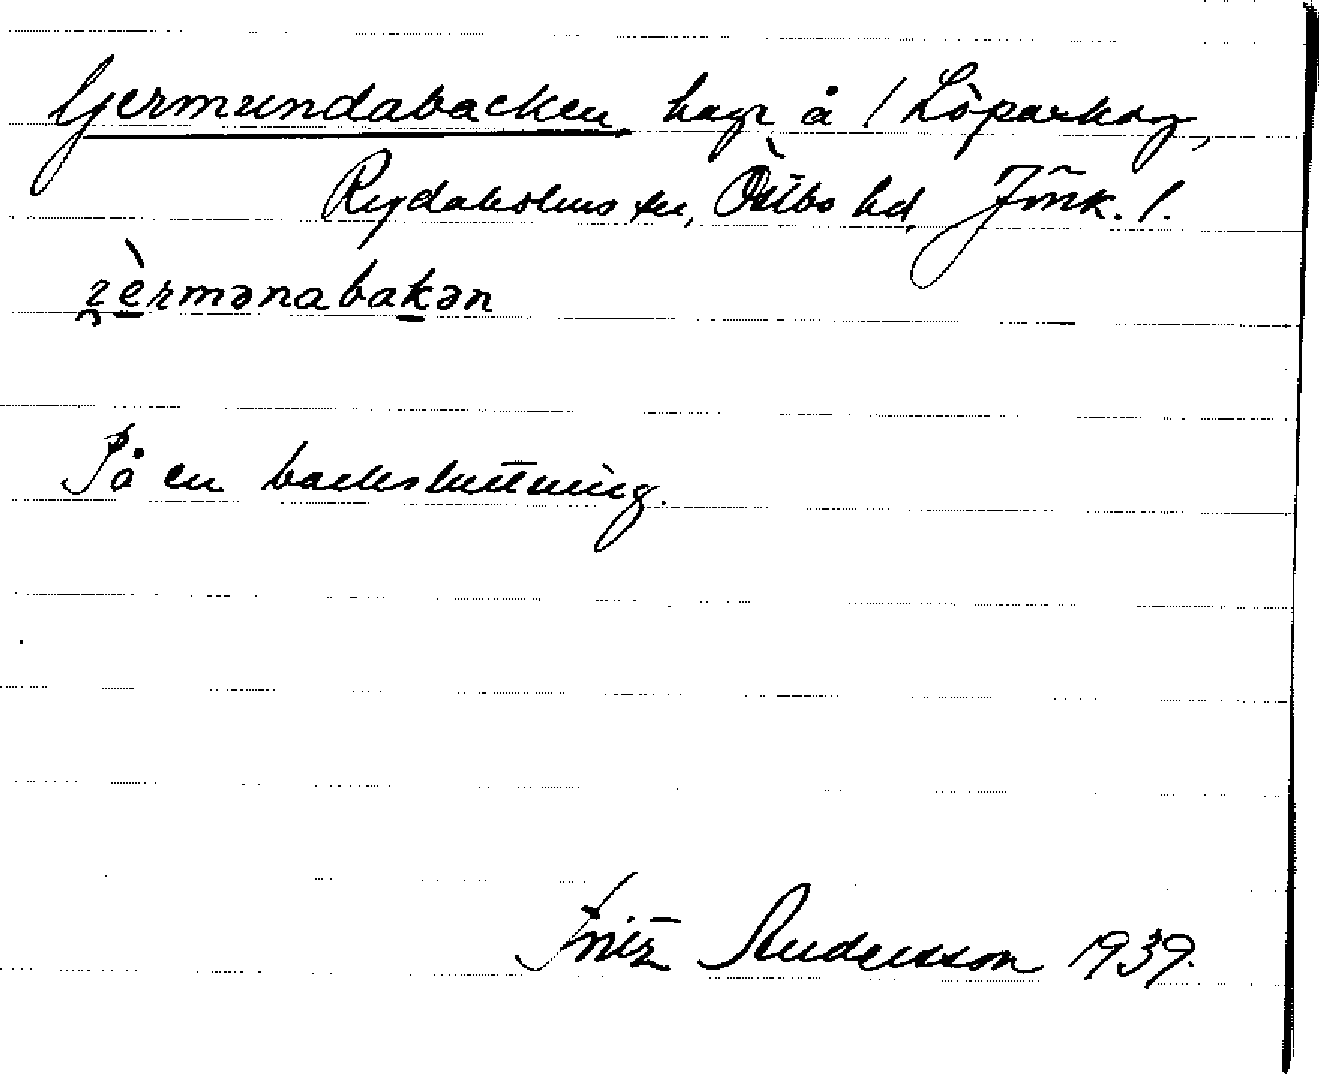 Germundabacken hage å / Löparskog,
Rydaholms sn, Östbo hd, Jönk. l.
jèrmənabakən
På en backsluttning.
Fritz Andersson 1939.